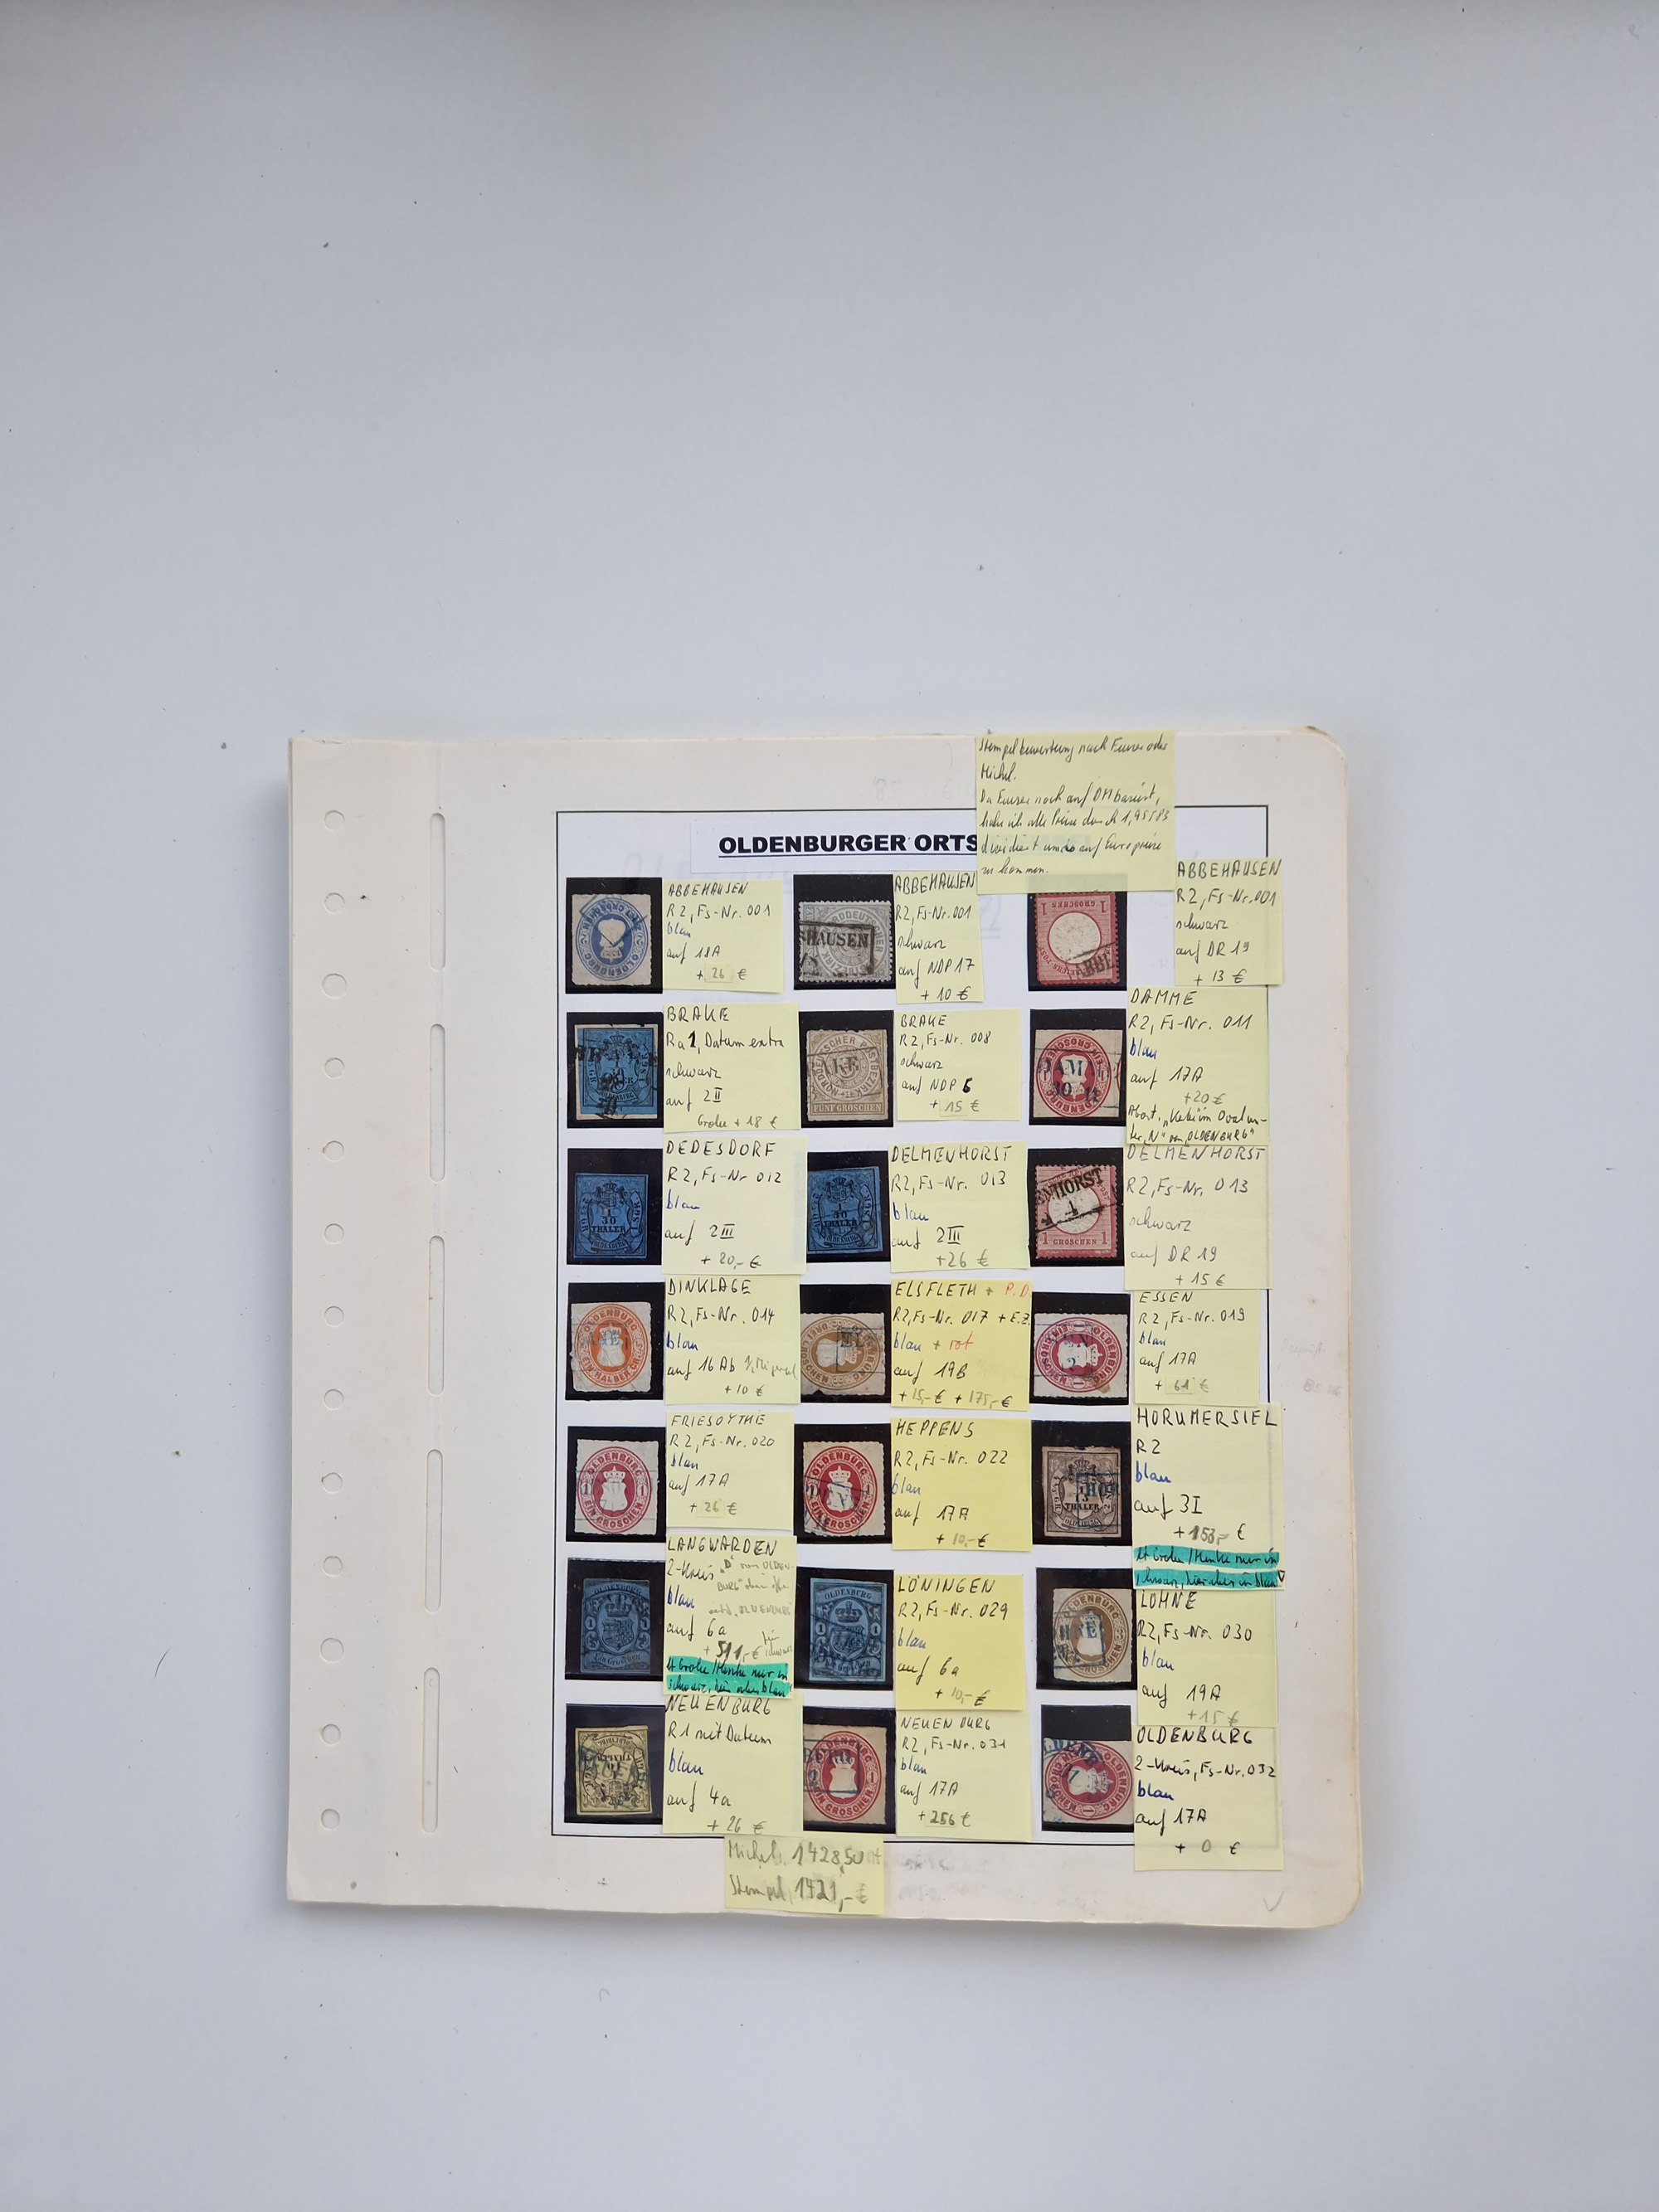 Stempelbewertung nach Feuser oder
Michel.
Da Feuser noch auf DM basiert,
habe ich alle Preise durch 1,95583
dividiert um so auf Europreise
zu kommen.
OLDENBURGER ORTS
ABBEHAUSEN
R2, Fs-Nr. 001
blau
auf 18A
+ 26 €
ABBEHAUSEN
R2, Fs-Nr. 001
schwarz
auf NDP 17
+ 10 €
ABBEHAUSEN
R2, Fs-Nr. 001
schwarz
auf DR 19
+ 13 €
BRAKE
Ra 1, Datum extra
schwarz
auf 2II
Grobe + 18 €
BRAKE
R2, Fs-Nr. 008
schwarz
auf NDP 6
+ 15 €
FÜNF GROSCHEN
DAMME
R2, Fs-Nr. 011
blau
auf 17A
+20 €
Abart. im Oval un-
ter „N" von „OLDENBURG"
DEDESDORF
R2, Fs-Nr 012
blau
auf 2III
+ 20,- €
1
30
THALER
DELMENHORST
R2, Fs-Nr. 013
blau
auf 2III
+26 €
1
30
THALER
DELMENHORST
R2, Fs-Nr. 013
schwarz
auf DR 19
+ 15 €
ENHORST
1 GROSCHEN 1
DINKLAGE
R2, Fs-Nr. 014
blau
auf 16Ab
+ 10 €
ELSFLETH + P.D
R2, Fs-Nr. 017 + E.Z.
blau + rot
auf 19B
+ 15,- € + 175,- €
ESSEN
R2, Fs-Nr. 019
blau
auf 17A
+ 61 €
FRIESOYTHE
R2, Fs-Nr. 020
blau
auf 17A
+ 26 €
OLDENBURG
EIN GROSCHEN
HEPPENS
R2, Fs-Nr. 022
blau
auf 17A
+ 10,- €
OLDENBURG
EIN GROSCHEN
HORUMERSIEL
R2
blau
auf 3I
+ 153,- €
lt Grobe / Henke nur in
schwarz, hier aber in blau
THALER
HOR
LANGWARDEN
2-Kreis „D" von OLDEN-
BURG
blau
auf 6a
+ 511,- € für schwarz
lt Grobe / Henke nur in
schwarz, hier aber blau
LÖNINGEN
R2, Fs-Nr. 029
blau
auf 6a
+ 10,- €
OLDENBURG
LOHNE
R2, Fs-Nr. 030
blau
auf 19A
+ 15 €
OLDENBURG
NEUENBURG
R1 mit Datum
blau
auf 4a
+ 26 €
NEUENBURG
R2, Fs-Nr. 031
blau
auf 17A
+ 256 €
EIN GROSCHEN
OLDENBURG
2-Kreis, Fs-Nr. 032
blau
auf 17A
+ 0 €
Michel. 1428,50
Stempel, 1421,- €